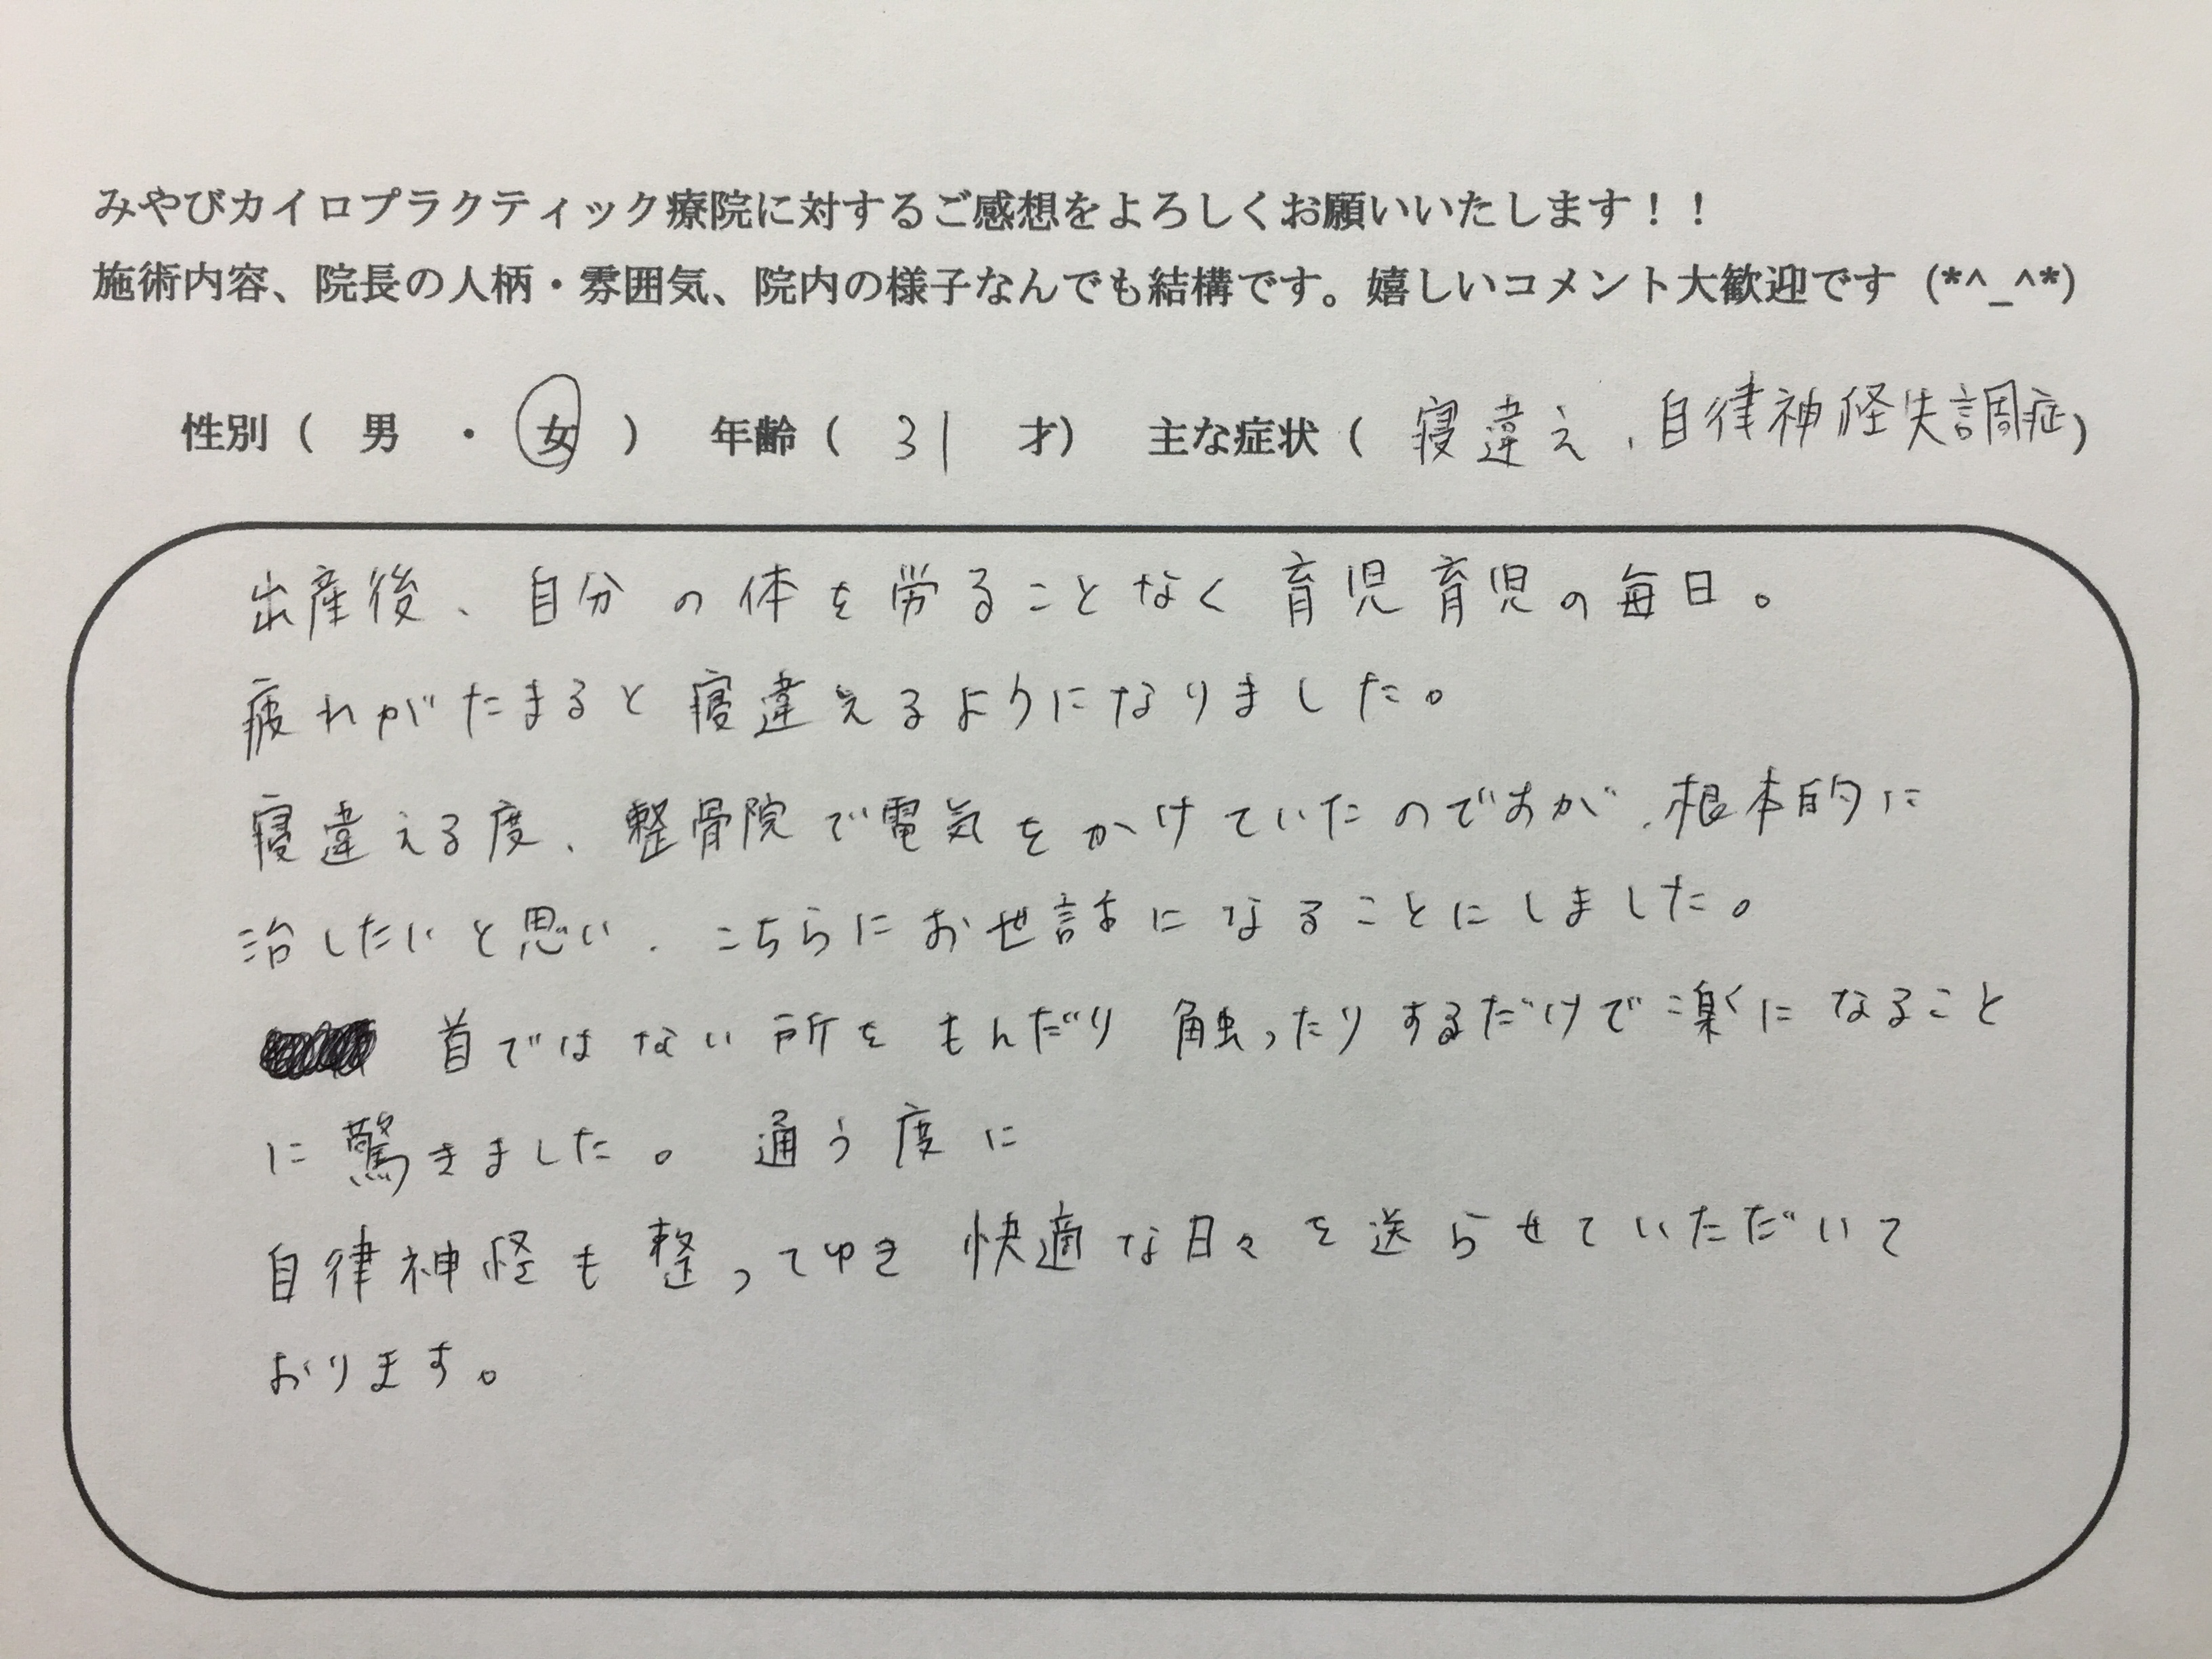 みやびカイロプラクティック療院に対するご感想をよろしくお願いいたします！！
施術内容、院長の人柄・雰囲気、院内の様子なんでも結構です。嬉しいコメント大歓迎です (*^_^*)
性別（ 男 ・ 女 ） 年齢（ 31 才） 主な症状（ 寝違え、自律神経失調症）
出産後、自分の体を労ることなく育児育児の毎日。
疲れがたまると寝違えるようになりました。
寝違える度、整骨院で電気をかけていたのですが、根本的に
治したいと思い、こちらにお世話になることにしました。
首ではない所をもんだり触ったりするだけで楽になること
に驚きました。通う度に
自律神経も整ってゆき快適な日々を送らせていただいて
おります。